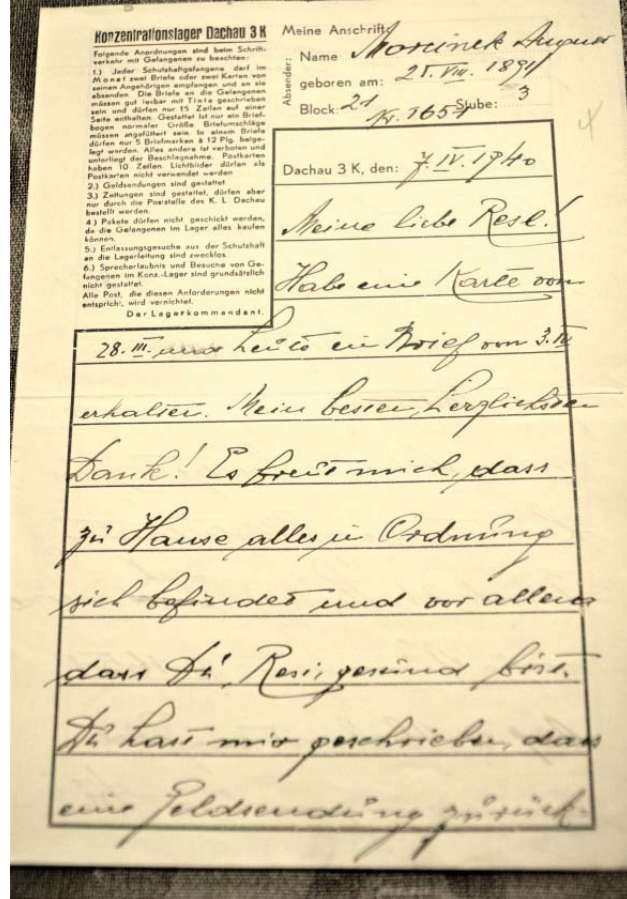 Konzentrationslager Dachau 3 K
Folgende Anordnungen sind beim Schrift-
verkehr mit Gefangenen zu beachten:
1.) Jeder Schutzhaftgefangene darf im
Monat zwei Briefe oder zwei Karten von
seinen Angehörigen empfangen und an sie
absenden. Die Briefe an die Gefangenen
müssen gut lesbar mit Tinte geschrieben
sein und dürfen nur 15 Zeilen auf einer
Seite enthalten. Gestattet ist nur ein Brief-
bogen normaler Größe. Briefumschläge
müssen ungefüttert sein. In einem Briefe
dürfen nur 5 Briefmarken à 12 Pfg. beige-
legt werden. Alles andere ist verboten und
unterliegt der Beschlagnahme. Postkarten
haben 10 Zeilen. Lichtbilder dürfen als
Postkarten nicht verwendet werden
2.) Geldsendungen sind gestattet.
3.) Zeitungen sind gestattet, dürfen aber
nur durch die Poststelle des K. L. Dachau
bestellt werden.
4.) Pakete dürfen nicht geschickt werden,
da die Gefangenen im Lager alles kaufen
können.
5.) Entlassungsgesuche aus der Schutzhaft
an die Lagerleitung sind zwecklos.
6.) Sprecherlaubnis und Besuche von Ge-
fangenen im Konz.-Lager sind grundsätzlich
nicht gestattet.
Alle Post, die diesen Anforderungen nicht
entspricht, wird vernichtet.
Der Lagerkommandant.
Meine Anschrift:
Absender:
Name Morcinek August
geboren am: 25. VIII. 1891
Block: 21 Stube: 3
Nr. 1651
Dachau 3 K, den: 7. IV. 1940
Meine liebe Resl!
Habe eine Karte vom
28. III. und heute ein Brief vom 3. IV
erhalten. Mein besten, herzlichsten
Dank! Es freut mich, dass
zu Hause alles in Ordnung
sich befindet und vor allem
dass Du, Resi, gesund bist.
Du hast mir geschrieben, dass
eine Geldsendung zurück-